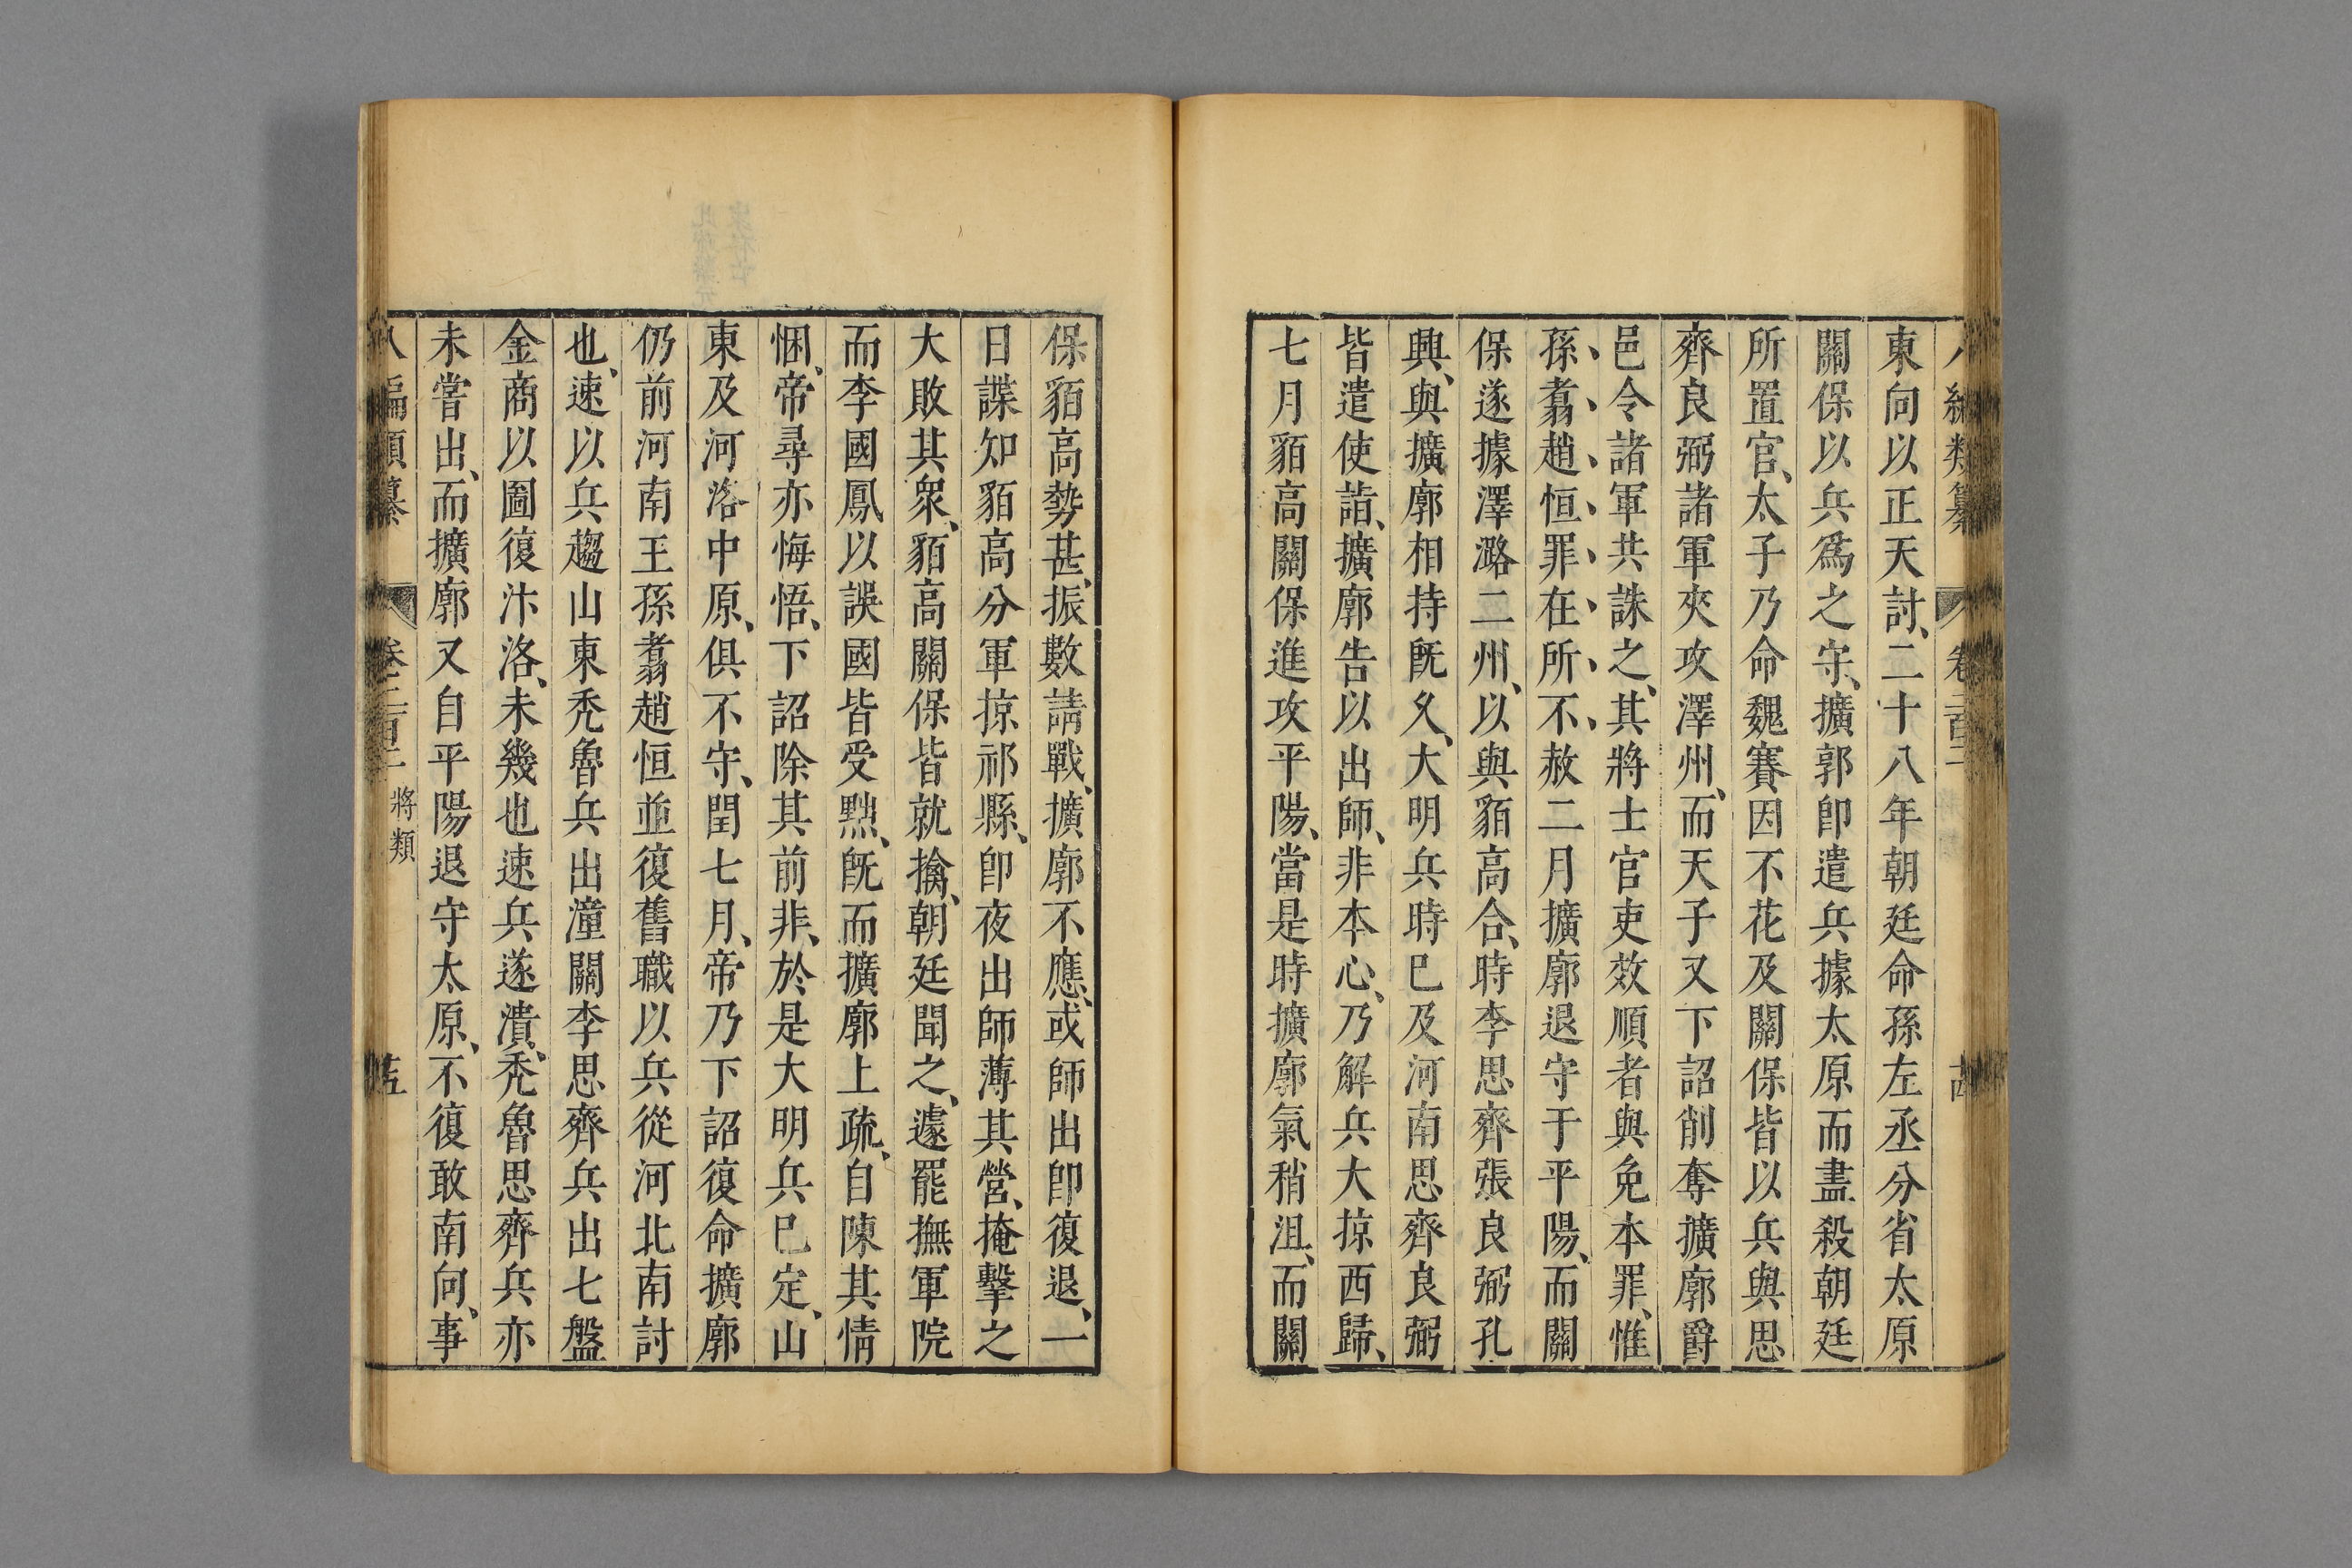 八編類纂 卷二百二 十四
東向以正天討、二十八年朝廷命孫左丞分省太原
關保以兵爲之守、擴郭卽遣兵據太原而盡殺朝廷
所置官、太子乃命魏賽因不花及關保皆以兵與思
齊良弼諸軍夾攻澤州、而天子又下詔削奪擴廓爵
邑令諸軍共誅之、其將士官吏效順者與免本罪、惟
孫、翥、趙、恒、罪、在、所、不、赦二月擴廓退守于平陽、而關
保遂據澤潞二州、以與貊高合、時李思齊張良弼孔
興、與擴廓相持旣久、大明兵時巳及河南思齊良弼
皆遣使詣、擴廓告以出師、非本心、乃解兵大掠西歸、
七月貊高關保進攻平陽、當是時擴廓氣稍沮、而關
保貊高勢甚、振數請戰、擴廓不應、或師出卽復退、一
日諜知貊高分軍掠祁縣、卽夜出師薄其營、掩擊之
大敗其衆、貊高關保皆就擒、朝廷聞之、遽罷撫軍院
而李國鳳以誤國皆受黜、旣而擴廓上疏、自陳其情
悃、帝尋亦悔悟、下詔除其前非、於是大明兵巳定、山
東及河洛中原、俱不守、閏七月、帝乃下詔復命擴廓
仍前河南王孫翥趙恒並復舊職以兵從河北南討
也、速以兵趨山東禿魯兵出潼關李思齊兵出七盤
金商以圖復汴洛、未幾也速兵遂潰、禿魯思齊兵亦
未嘗出、而擴廓又自平陽退守太原、不復敢南向、事
八編類纂 卷二百二 將類 十五